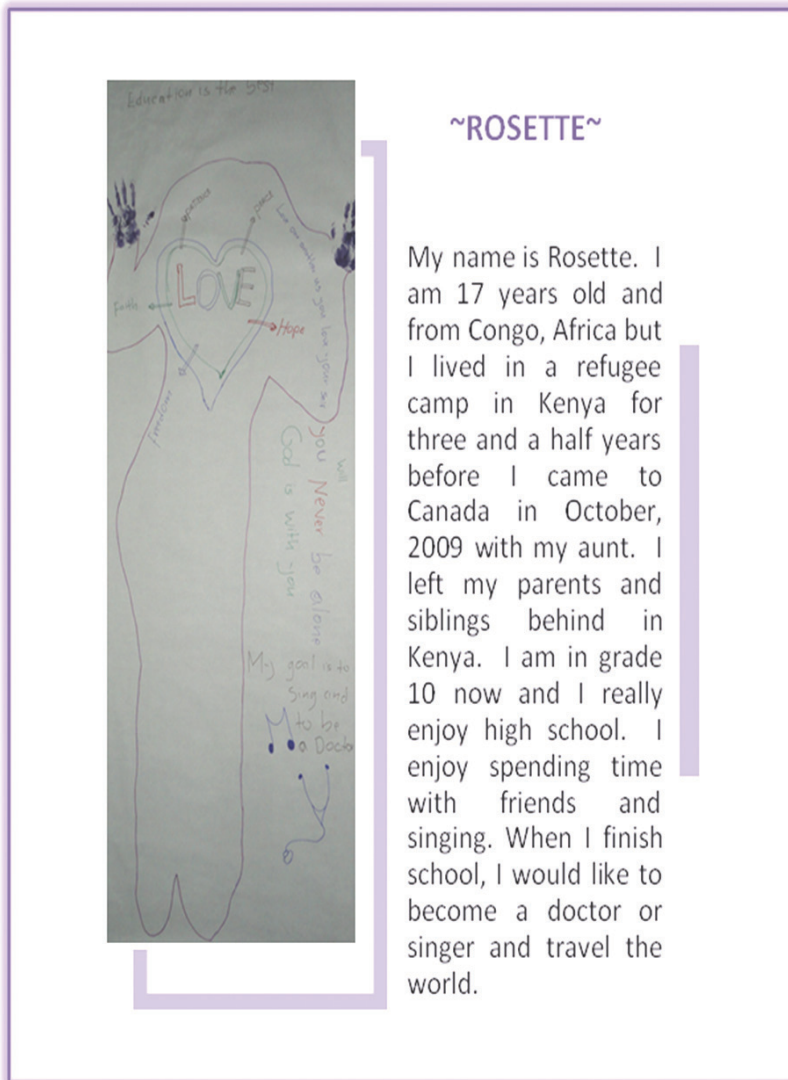 Education is the best
patience
peace
Love one another as you love your
LOVE
Faith
Hope
freedom
will
you Never be alone
God is with you
My goal is to
Sing and
to be
a Docto
~ROSETTE~
My name is Rosette. I
am 17 years old and
from Congo, Africa but
I lived in a refugee
camp in Kenya for
three and a half years
before I came to
Canada in October,
2009 with my aunt. I
left my parents and
siblings behind in
Kenya. I am in grade
10 now and I really
enjoy high school. I
enjoy spending time
with friends and
singing. When I finish
school, I would like to
become a doctor or
singer and travel the
world.